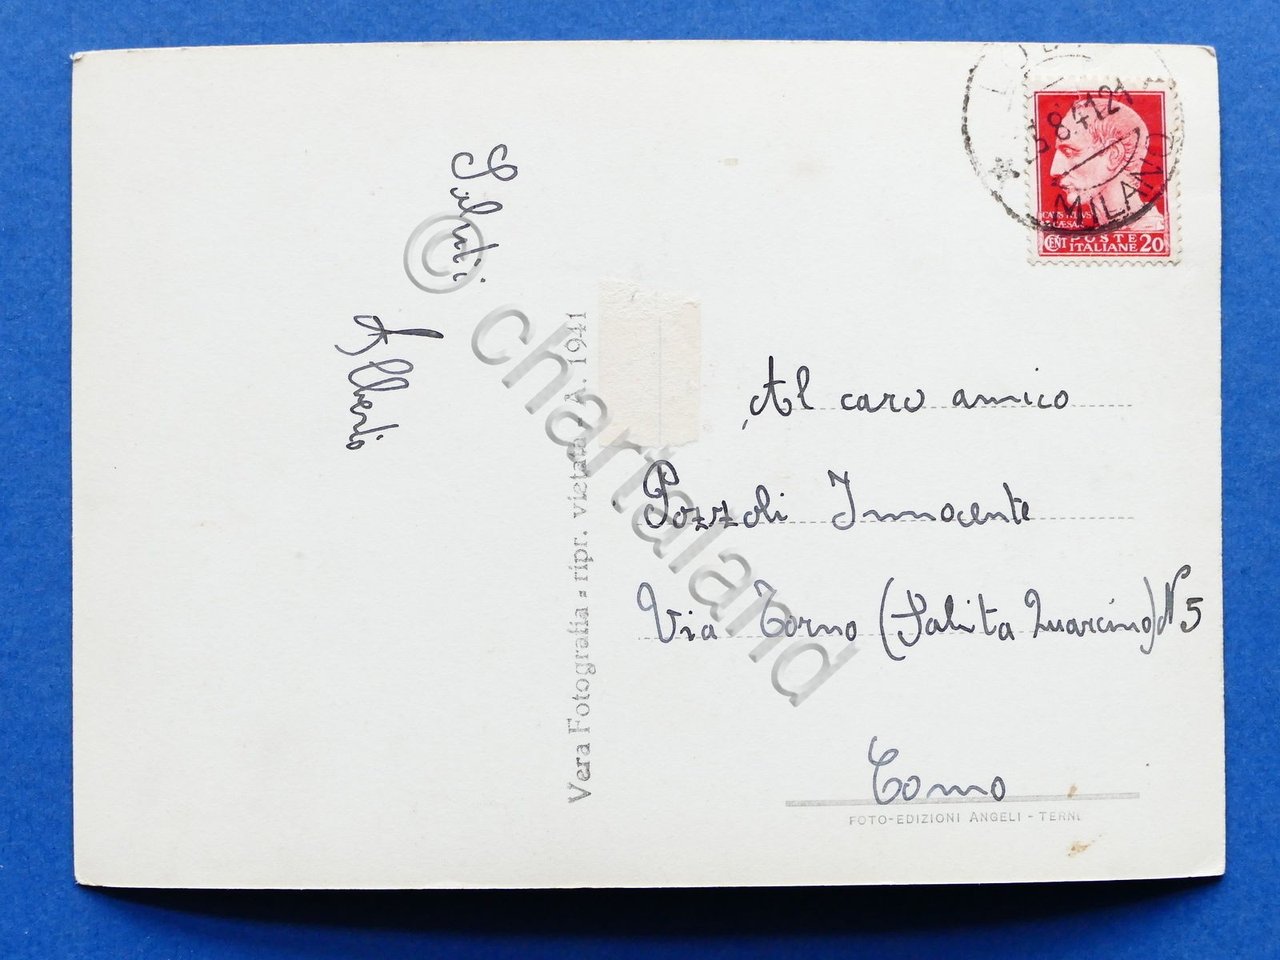 Saluti
Alberto
Vera Fotografia - ripr. vietata - A. 1941
MILANO
3.8.41.21
CENT POSTE ITALIANE 20
Al caro amico
Pozzoli Innocente
Via Torno (Salita Quarcino) N 5
Como
FOTO-EDIZIONI ANGELI - TERNI
© chartaland